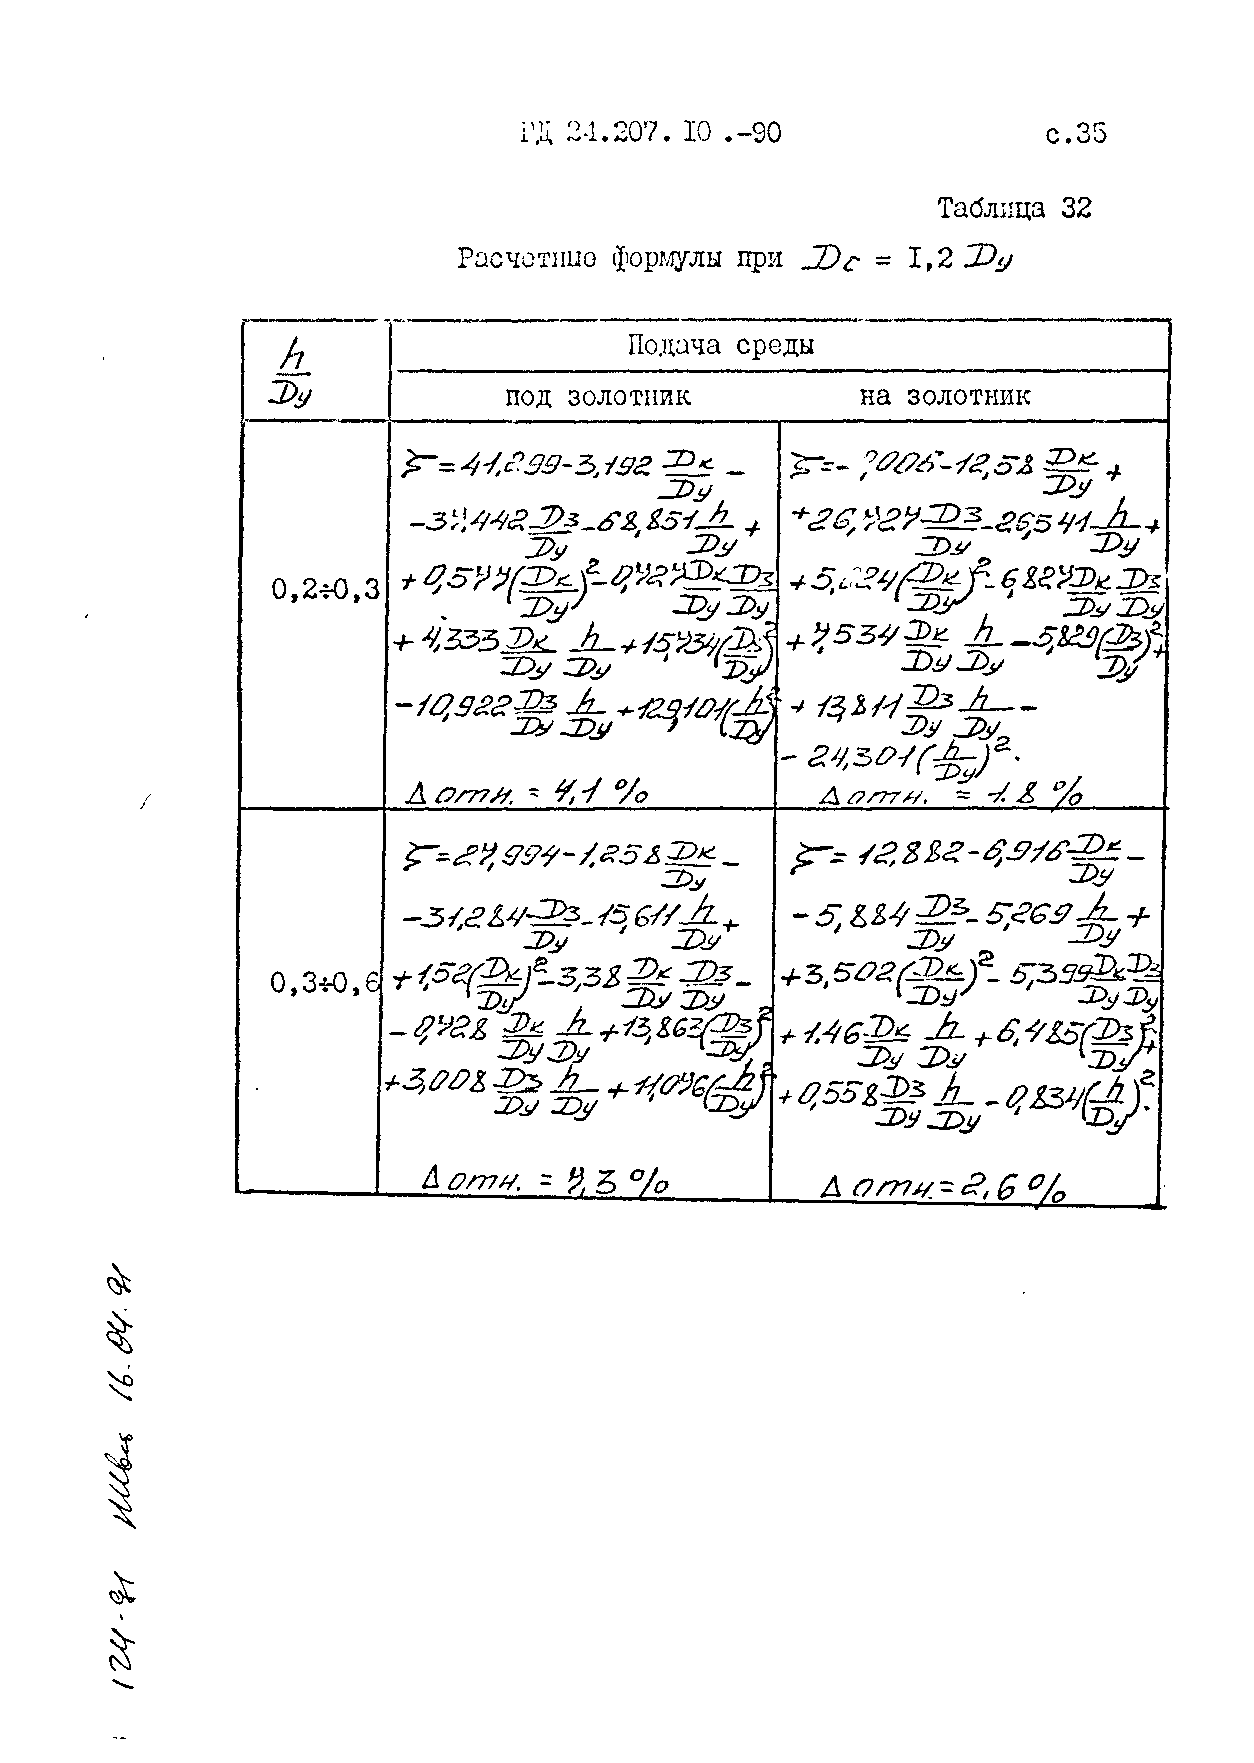 РД 24.207.10.-90 с.35
Таблица 32
Расчетные формулы при Dс = I,2 Dу
h/Dу
Подача среды
под золотник на золотник
0,2÷0,3
ζ=41,299-3,192 Dк/Dу -
-37,442 Dз/Dу - 68,851 h/Dу +
+0,577(Dк/Dу)² - 0,727 Dк/Dу Dз/Dу
+4,333 Dк/Dу h/Dу + 15,734(Dз/Dу)²
-10,922 Dз/Dу h/Dу + 129,101(h/Dу)²
Δ отн. = 4,1 %
-12,58 Dк/Dу +
+26,727 Dз/Dу - 26,541 h/Dу +
(Dк/Dу)² - 6,827 Dк/Dу Dз/Dу
+7,534 Dк/Dу h/Dу - 5,829(Dз/Dу)² +
+ 13,811 Dз/Dу h/Dу -
- 24,301(h/Dу)².
Δ отн. = 1.8 %
0,3÷0,6
ζ=27,994-1,258 Dк/Dу -
-31,284 Dз/Dу - 15,611 h/Dу +
+1,52(Dк/Dу)² - 3,38 Dк/Dу Dз/Dу -
- 0,728 Dк/Dу h/Dу + 13,863(Dз/Dу)²
+3,008 Dз/Dу h/Dу + 11,076(h/Dу)²
Δ отн. = 7,3 %
ζ= 12,882-6,916 Dк/Dу -
-5,884 Dз/Dу - 5,269 h/Dу +
+3,502(Dк/Dу)² - 5,399 Dк/Dу Dз/Dу
+1.46 Dк/Dу h/Dу + 6,485(Dз/Dу)² +
+0,558 Dз/Dу h/Dу - 0,834(h/Dу)².
Δ отн.=2,6 %
124-91 16.04.91